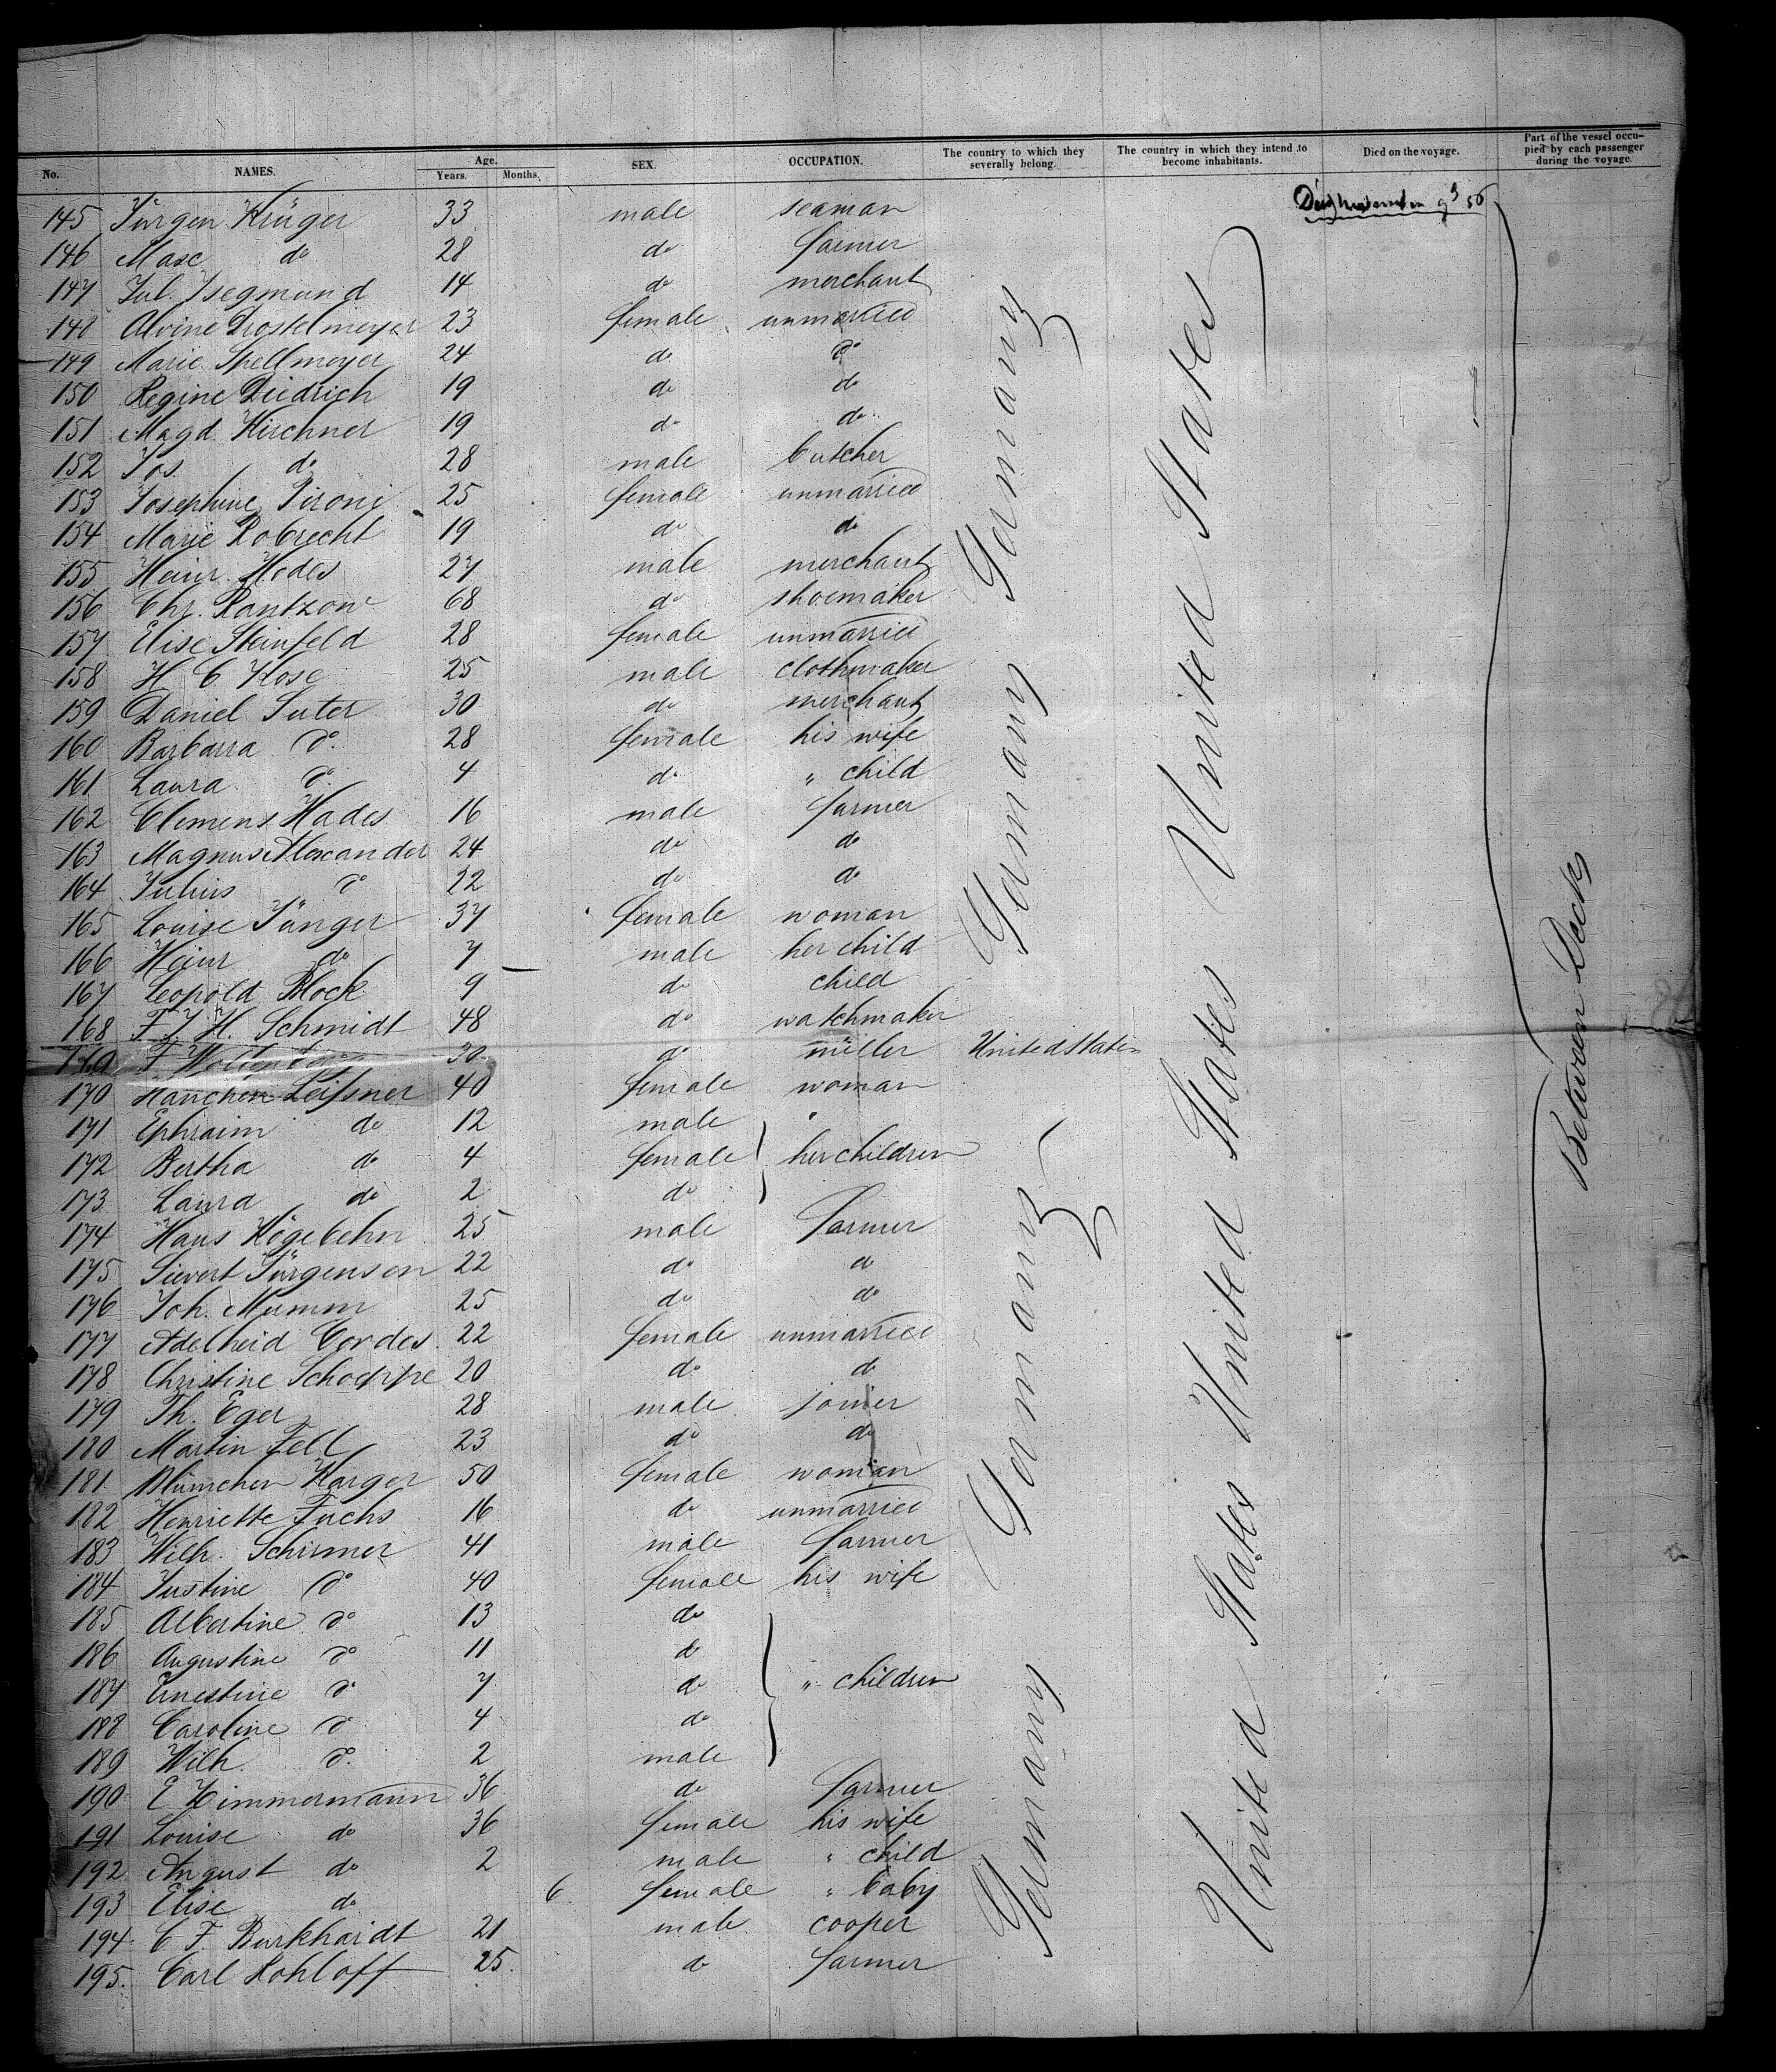 No. NAMES. Age. Years. Months. SEX. OCCUPATION. The country to which they severally belong. The country in which they intend to become inhabitants. Died on the voyage. Part of the vessel occupied by each passenger during the voyage.
145 Jürgen Krüger 33 male seaman
146 Masc do 28 do farmer
147 Jul. Isegmund 14 do merchant
148 Alvine Trostelmeyer 23 female unmarried
149 Marie Spellmeyer 24 do do
150 Regine Diedrich 19 do do
151 Magd. Kirchner 19 do do
152 Jos. do 28 male butcher
153 Josephine Pironi 25 female unmarried
154 Marie Robrecht 19 do do
155 Heinr. Hodes 27 male merchant
156 Chr. Rantzow 68 do shoemaker
157 Elise Steinfeld 28 female unmarried
158 H C Kose 25 male clothmaker
159 Daniel Suter 30 do merchant
160 Barbarra do 28 female his wife
161 Laura do 4 do " child
162 Clemens Hades 16 male farmer
163 Magnus Alexander 24 do do
164 Julius do 22 do do
165 Louise Jünger 37 female woman
166 Heinr do 7 male her child
167 Leopold Block 9 do child
168 F. J. H. Schmidt 48 do watchmaker
169 F 30 do miller United States
170 Hannchen Leissner 40 female woman
171 Ephraim do 12 male
172 Bertha do 4 female her children
173 Laura do 2 do
174 Hans Högebehn 25 male farmer
175 Sievert Jürgensen 22 do do
176 Joh. Mumm 25 do do
177 Adelheid Cordes 22 female unmarried
178 Christine Schoeppe 20 do do
179 Th. Eger 28 male joiner
180 Martin Fell 23 do do
181 Blümchen Karger 50 female woman
182 Henriette Fuchs 16 do unmarried
183 Wilh. Schirmer 41 male farmer
184 Justine do 40 female his wife
185 Albertine do 13 do
186 Augustine do 11 do
187 Ernestine do 7 do " children
188 Caroline do 4 do
189 Wilh. do 2 male
190 E Zimmermann 36 do farmer
191 Louise do 36 female his wife
192 August do 2 male " child
193 Elise do 6 female " baby
194 C F. Burkhardt 21 male cooper
195. Carl Kohloff 25. do farmer
Germany Germany Germany Germany
United States United States United States
Between Decks